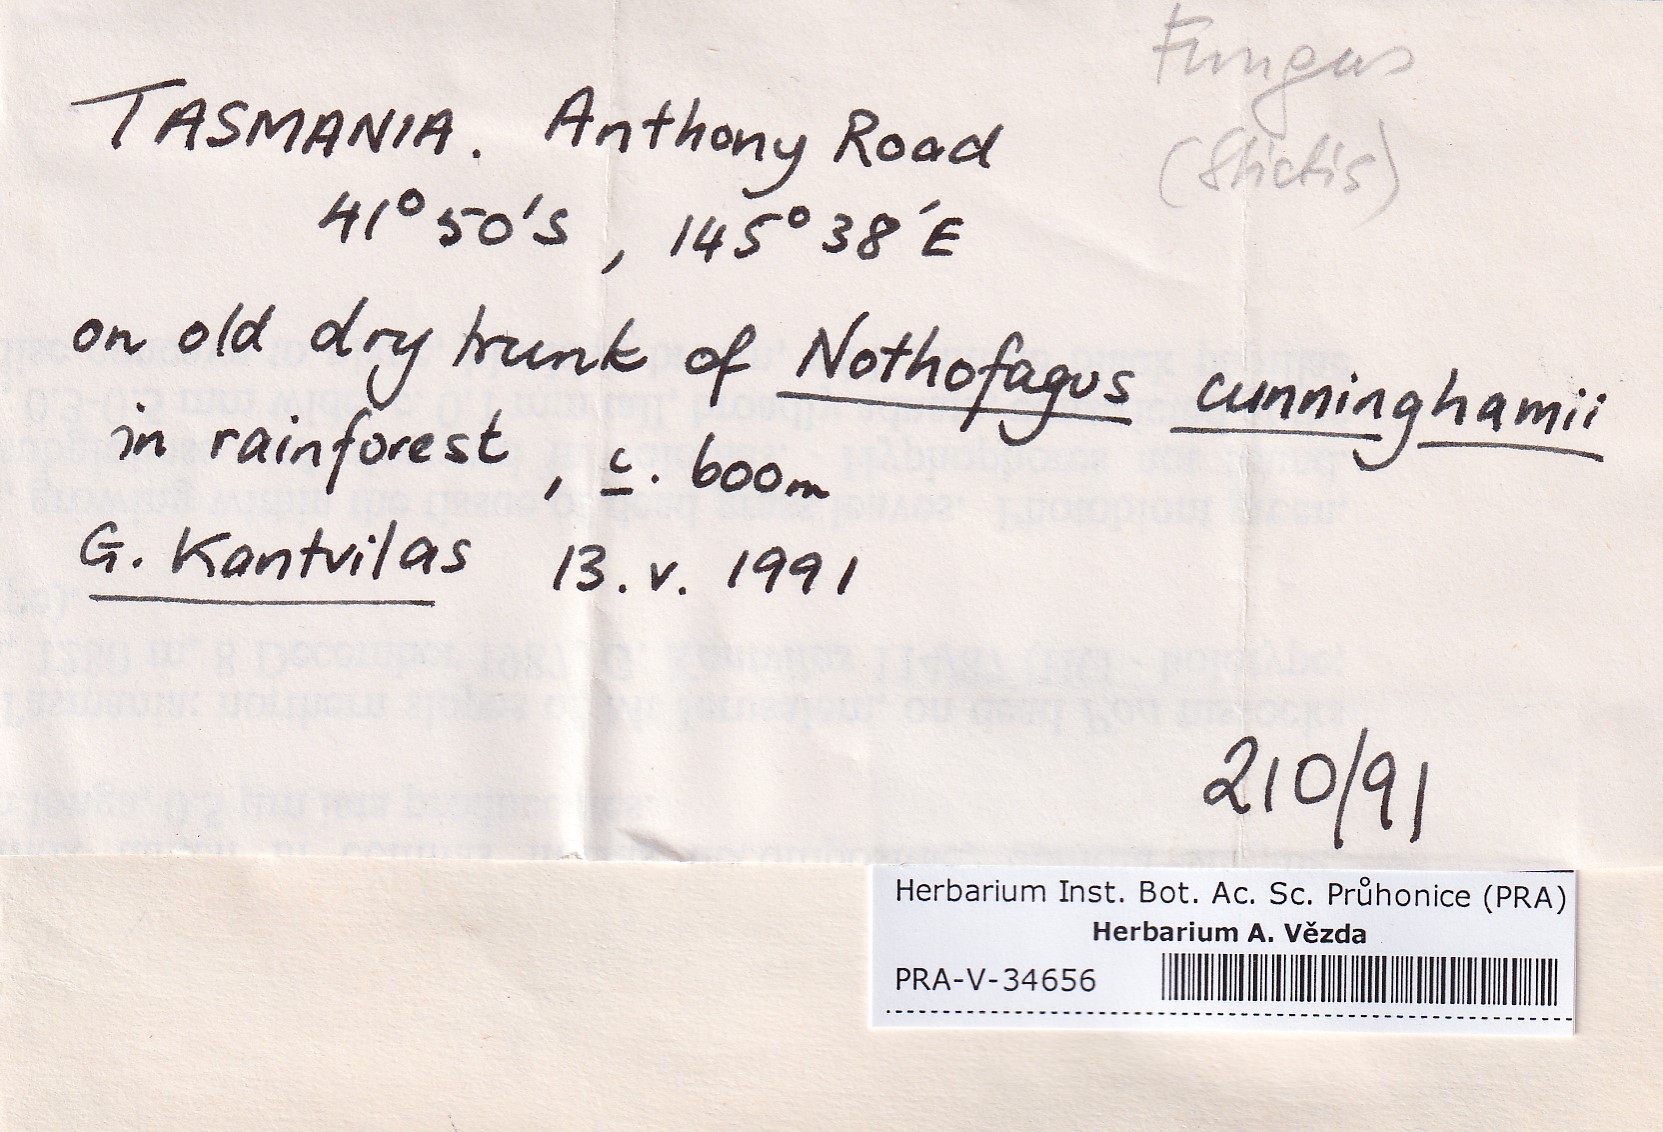 Fungus
(Stictis)
TASMANIA. Anthony Road
41° 50's, 145° 38'E
on old dry trunk of Nothofagus cunninghamii
in rainforest, c. 600m
G. Kantvilas 13. v. 1991
210/91
Herbarium Inst. Bot. Ac. Sc. Průhonice (PRA)
Herbarium A. Vězda
PRA-V-34656